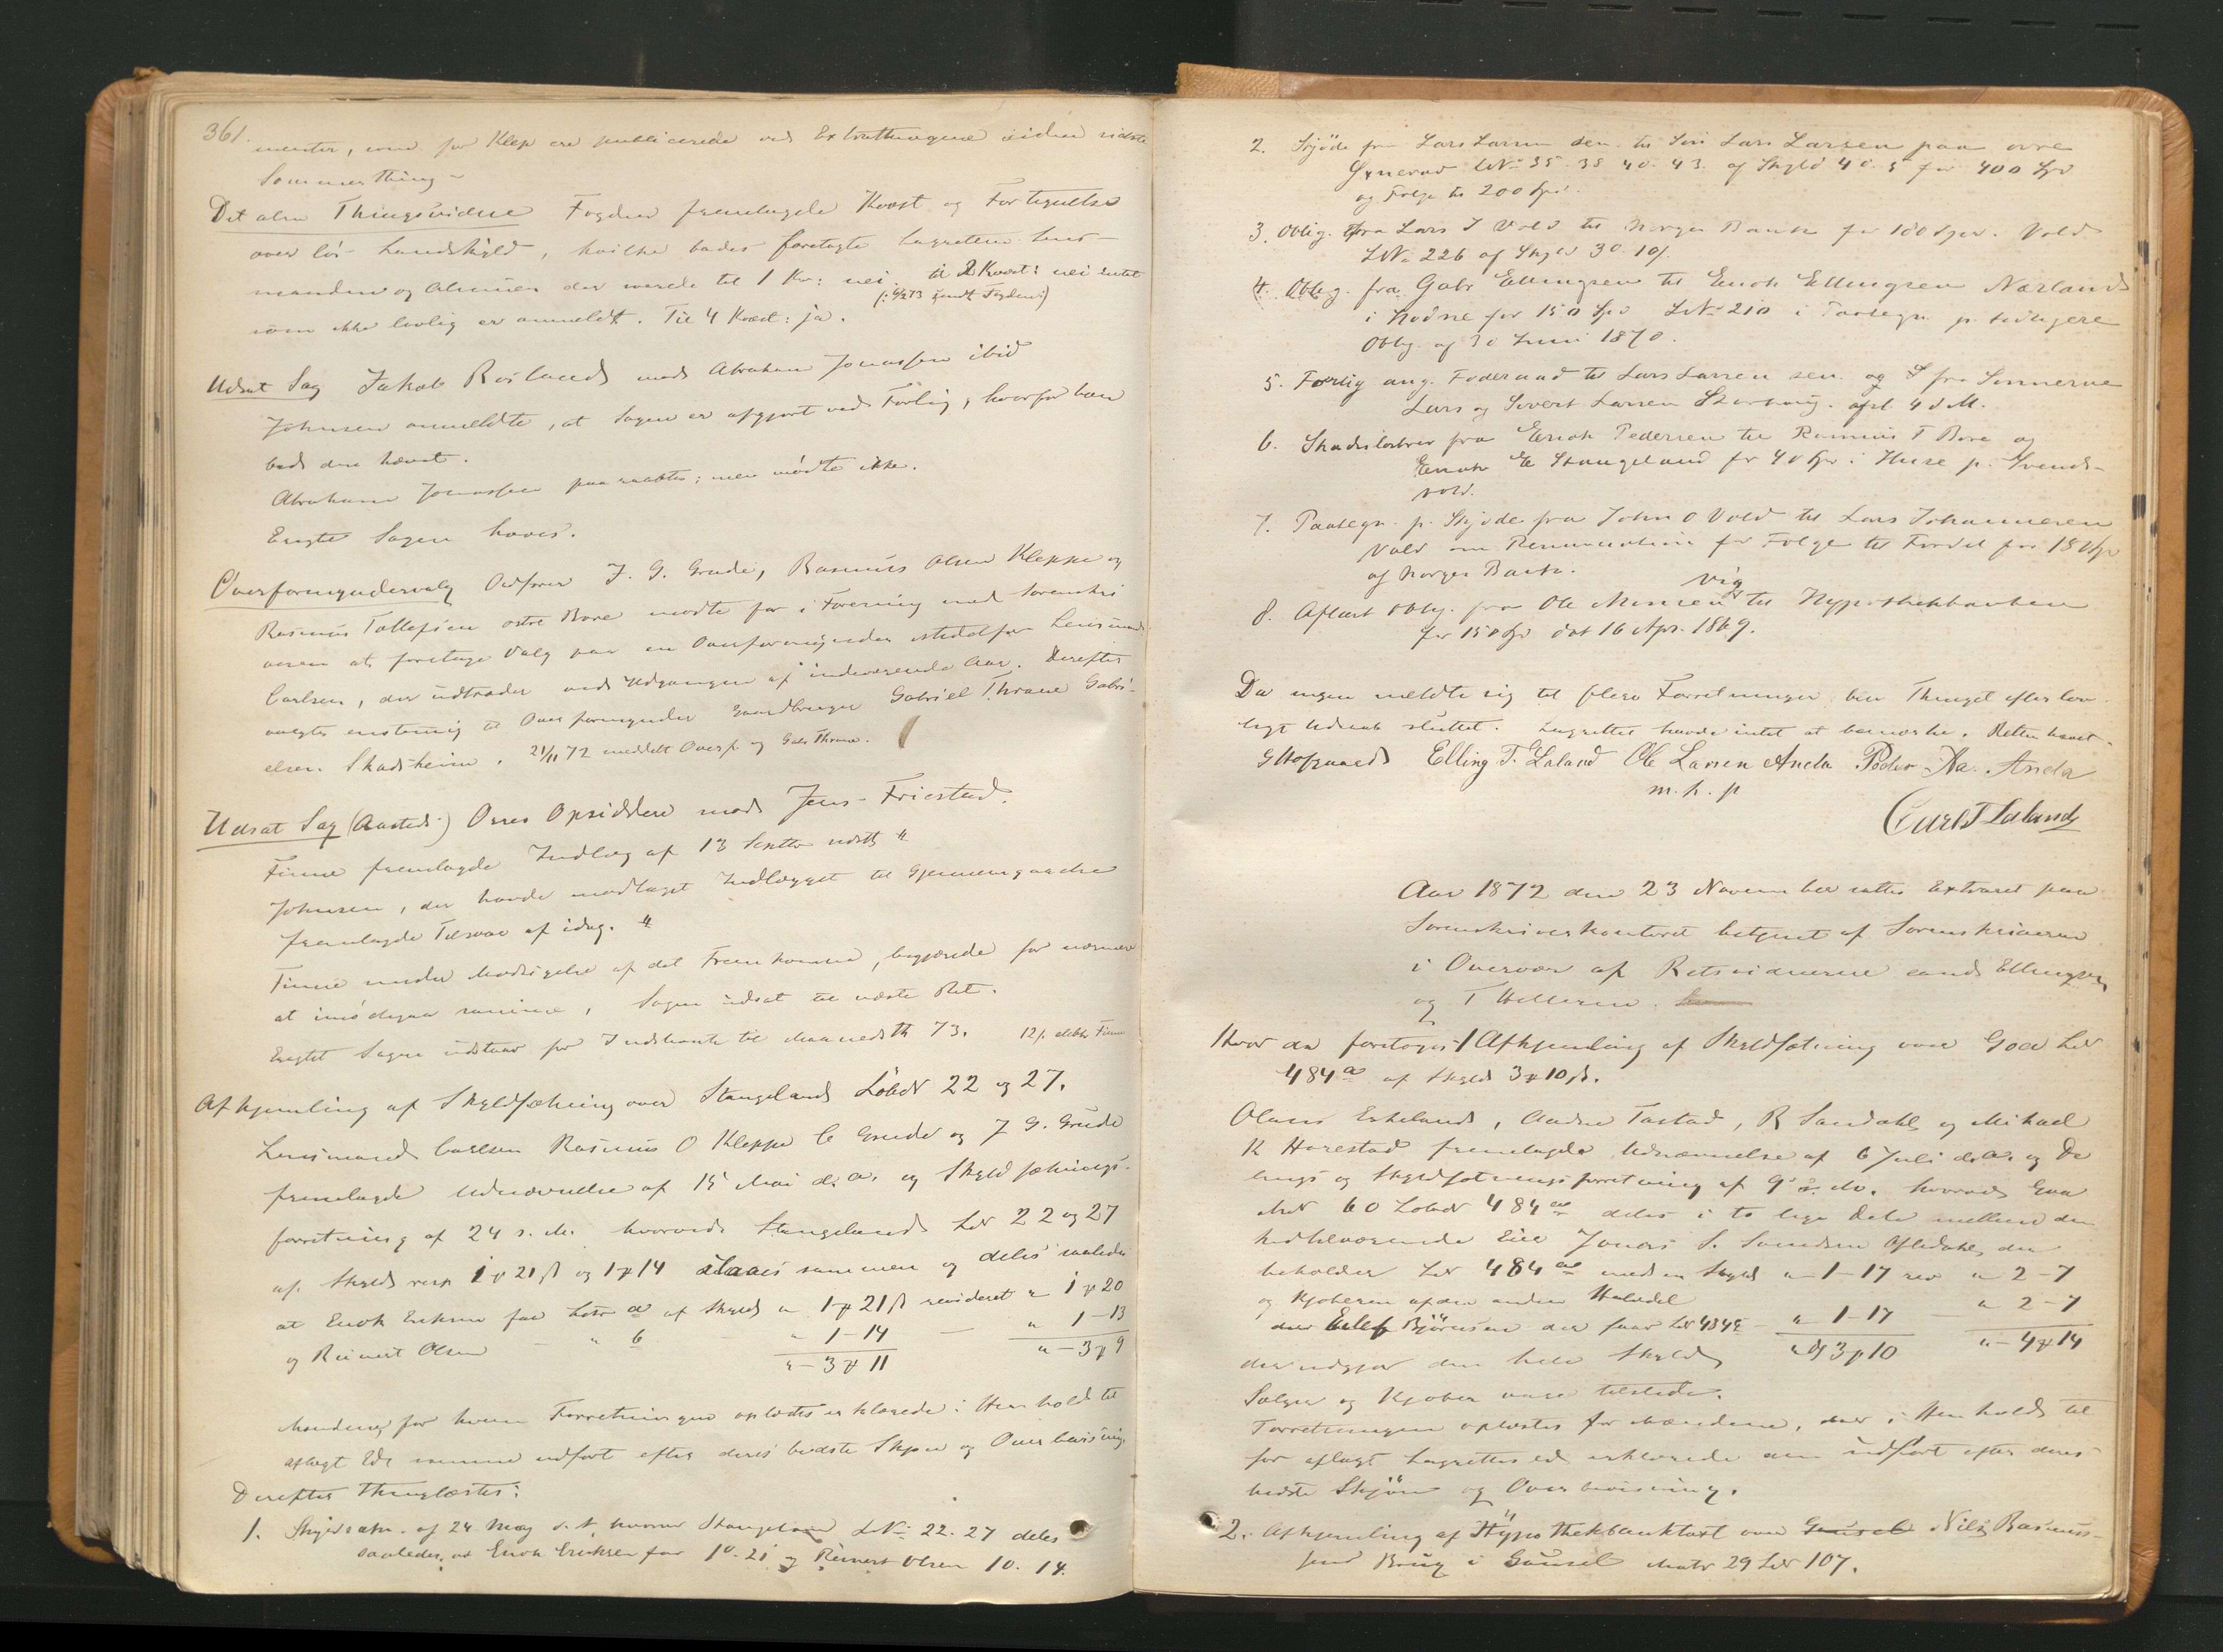 361.
menter, som for Klep ere publicerede ved Extrathingene siden sidste
Sommerthing -
Det alm Thingsvidne Fogden fremlagde Kvæst og Fortegnelse
over løs Landskyld, hvilke bades foretagte Lagrettem Lens-
manden og Almuen der svarede til 1 Kv: nei. til 2 Kvæst: nei intet
(: 6/2 73 sendt Fogden :)
som ikke lovlig er anmeldt. Til 4 Kvæst: ja.
Udsat Sag Jakob Roslands mod Abraham Jonassen ibid
Johnsen anmeldte, at Sagen er afgjort ved Forlig, hvorfor han
bad den hævet.
Abraham Jonassen paaraabtes; men mødte ikke.
Eragtet Sagen hæves.
Overformyndervalg Ordfører J. G. Grude, Rasmus Olsen Kleppe og
Rasmus Tollefsen østre Bore mødte for i Forening med Sorenskri
veren at foretage Valg paa en Overformynder istedetfor Lensmand
Carlsen, der udtræder ved Udgangen af indeværende Aar. Derefter
valgtes enstemig til Overformynder Gaardbruger Gabriel Thrane Gabri-
elsen Skadsheim. 21/11 72 meddelt Overf. og Gabr Thrane.
Udsat Sag (Aasteds:) Orres Opsiddere mod Jens Friestad.
Finne fremlagde Indlæg af 13 Septbr
Johnsen, der havde modtaget Indlægget til Gjennemgaaelse
fremlagde Tilsvar af idag.
Finne under Modsigelse af det Fremkomne, begjærede for nærmere
at imødegaa samme, Sagen udsat til næste Ret.
Eragtet Sagen udstaar for Indkomst til Maanedsth 73. 12/. Finne
Afhjemling af Skyldsætning over Stangelands Løbn 22 og 27.
Lensmand Carlsen Rasmus O Kleppe C Grude og J G. Grude
fremlagde Udnævnelse af 15 Mai d. A. og Skyldsætnings-
forretning af 24 s. M. hvorved Stangelands Ln 22 og 27
af Skyld resp 1 p 21 ß og 1 p 14 slaaes sammen og deles saaledes
at Enok Eriksen faar Lobn a af Skyld " 1 p 21 ß revideret " 1 p 20
og Reinert Olsen — " b " 1-14 — " 1-13
" - 3 p 11 " - 3 p 9
Mændene for hvem Forretningen oplæstes erklærede i Henhold til
aflagt Ed samme udført efter deres bedste Skjøn og Overbevisning
Derefter Thinglæstes:
1. Skyldsætn. af 24 May d. A. hvorved Stangeland LNo 22. 27 deles
saaledes, at Enok Eriksen faar 10. 21 og Reinert Olsen 10. 14.
2. Skjöde fra Lars Larsen sen. til Søn Lars Larsen paa øvre
LNo 35. 38 40. 43. af Skyld 40. 5 for 400 Spd
og Folge til 200 Spd.
3. Oblig. fra Lars J Vold til Norges Bank for 180 Spd. Vold
LNo 226 af Skyld 30. 10ß.
4. Oblig. fra Gabr Ellingsen til Enok Ellingsen Nærland
i Hodne for 150 Spd LNo 210 i Paategn p. tidligere
Oblig. af 30 Juni 1870.
5. Forlig ang. Foderaad til Lars Larsen sen. og fra Sønnerne
Lars og Sivert Larsen afsl. 4 d M.
6. Skadesløsbrev fra Enok Pedersen til Rasmus T Bore og
Enok E Stangeland for 40 Spd i Huse p. Svends-
vold.
7. Paategn. p. Skjøde fra John O Vold til Lars Johannesen
Vold om Renunciation for Folge til Fordel for 180 Spd
af Norges Bank.
8. Aflæst Oblig. fra Ole Monsen Vig til Hypothekbanken
for 150 Spd dat 16 Apr. 1869.
Da ingen meldte sig til flere Forretninger blev Thinget efter lov-
ligt Udraab sluttet. Lagrettet havde intet at bemærke. Retten hævet.
Elling T. Laland Ole Larsen Anda Peder Aa. Anda
m. h. p
Carl T Laland
Aar 1872 den 23 November sattes Extraret paa
Sorenskriverkontoret betjent af Sorenskriveren
i Overvær af Retsvidnerne cand Ellingsen
og T Helleren.
Hvor da foretoges 1 Afhjemling af Skyldsætning over Goa Ln
484 a af Skyld 3 p 10 ß.
Olaus Eskeland, Andre Tastad, R Sandahl og Mikael
K Harestad fremlagde Udnævnelse af 6 Juli d. A. og De
lings og Skyldsætningsforretning af 9 s. M. hvorved Goa
Mn 60 Lobn 484 a deles i to lige Dele mellem den
hidtilværende Eier Jonas S. Svendsen , der
beholder Ln 484 a med en Skyld " 1-17 rev " 2-7
og Kjøberen af den anden Halvdel
der faar Ln 484 — " 1-17 — " 2-7
der udgjør den hele Skyld " 3 p 10 " - 4 p 14
Sælger og Kjøber vare tilstede.
Forretningen oplæstes for Mændene, der i Henhold til
før aflagt Lagrettesed erklærede den udført efter deres
bedste Skjøn og Overbevisning.
2. Afhjemling af Hypothekbanktaxt over Nils Rasmus-
sens Brug i Gausel Matr 29 Ln 107.